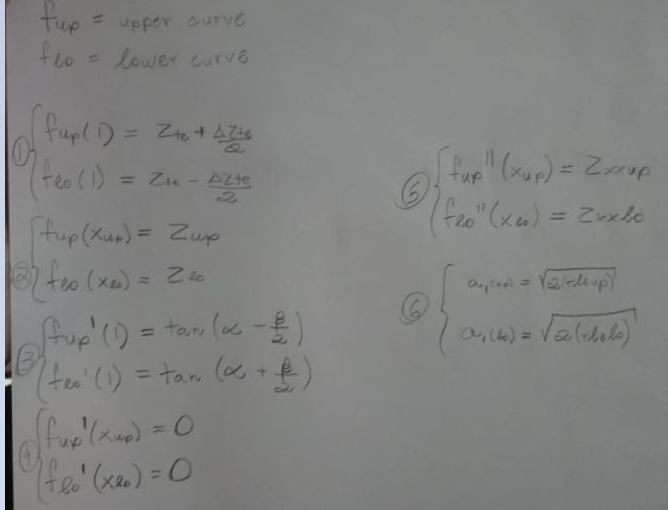 fup = upper curve
flo = lower curve
① { fup(1) = Zte + ΔZte/2
flo(1) = Zte - ΔZte/2
② { fup(xup) = Zup
flo(xlo) = Zlo
③ { fup'(1) = tan(α - β/2)
flo'(1) = tan(α + β/2)
④ { fup'(xup) = 0
flo'(xlo) = 0
⑤ { fup''(xup) = Zxxup
flo''(xlo) = Zxxlo
⑥ { a₁(up) = √2(rleup)
a₁(lo) = √2(rlelo)